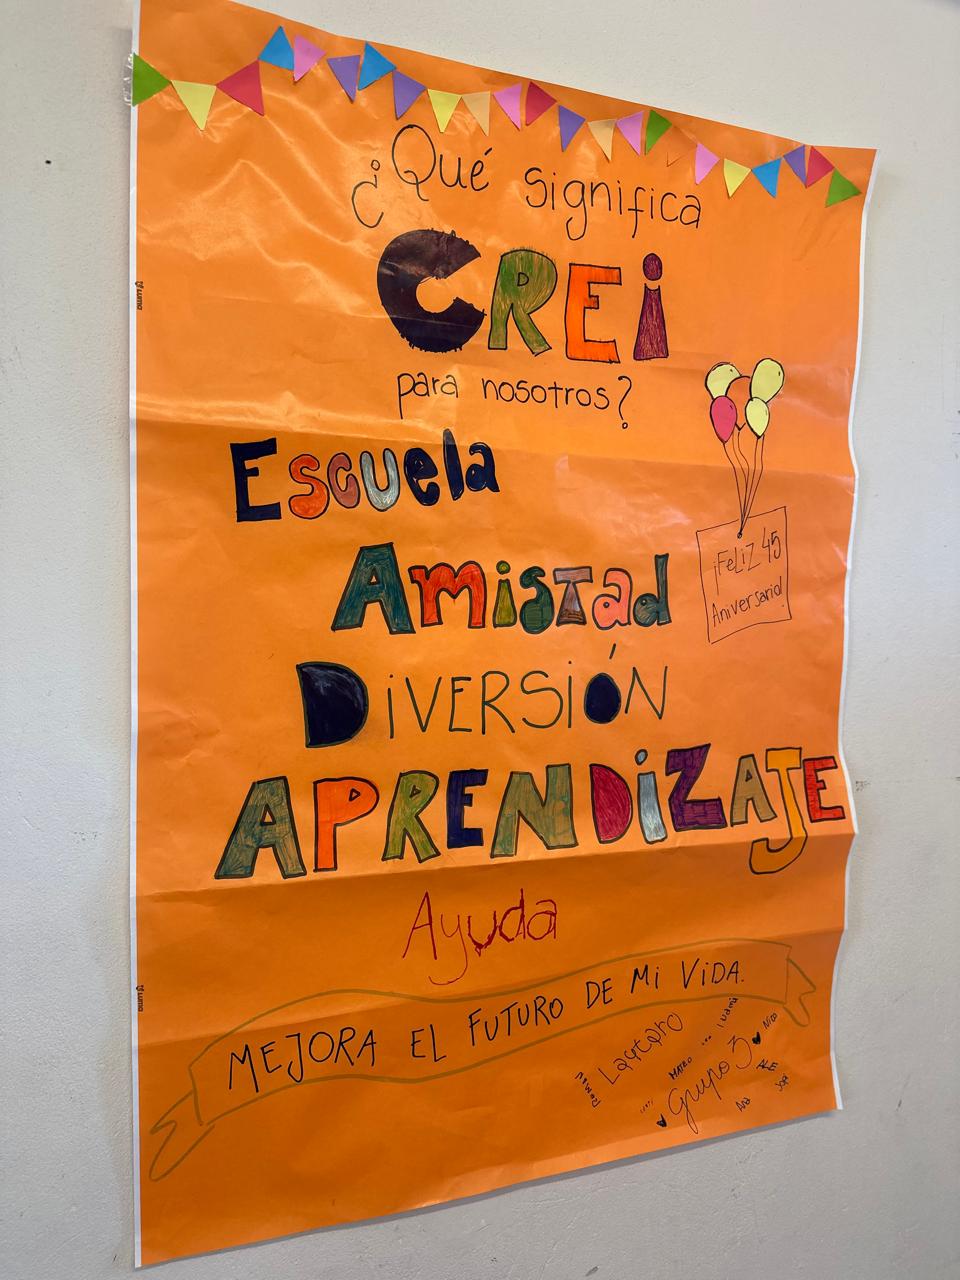 ¿Qué significa
CREi
para nosotros?
Escuela
Amistad
¡FeLiZ 45
Aniversario!
DiVERSIÓN
APRENDiZAJE
Ayuda
MEJORA EL FUTURO DE Mi ViDA.
Lautaro
MATEO
Grupo 3
Nico
ALE
Ana
Sofi